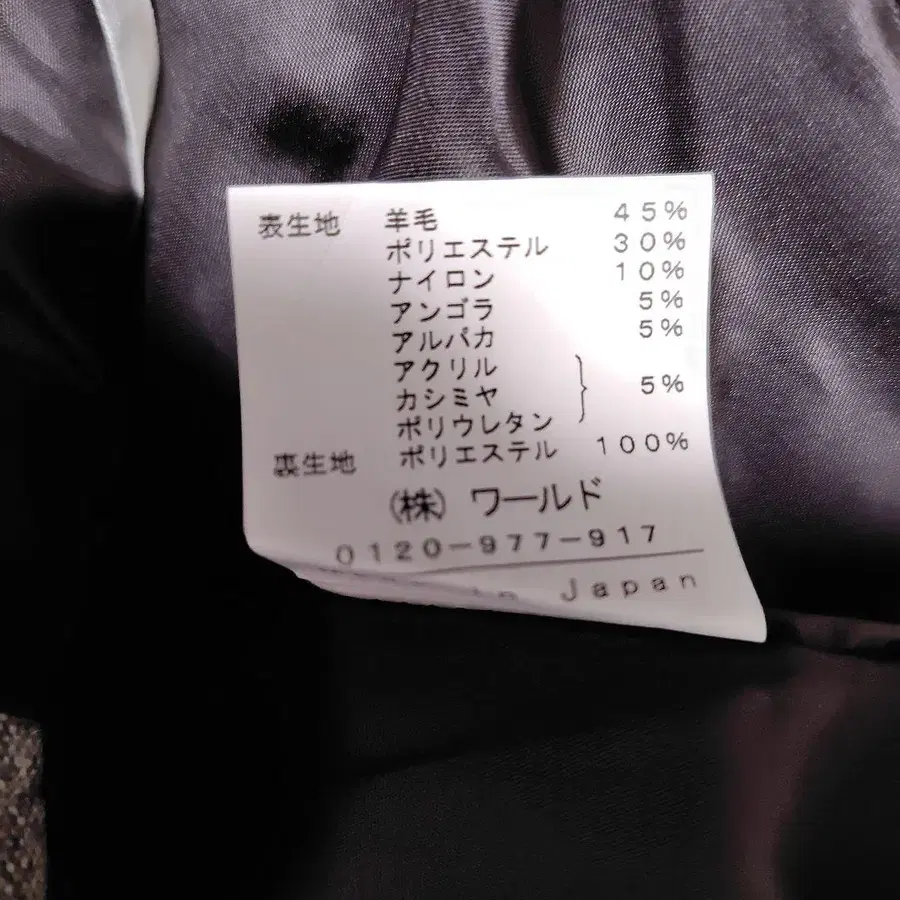 表生地 羊毛 45%
ポリエステル 30%
ナイロン 10%
アンゴラ 5%
アルパカ 5%
アクリル
カシミヤ 5%
ポリウレタン
裏生地 ポリエステル 100%
(株) ワールド
0120-977-917
in Japan